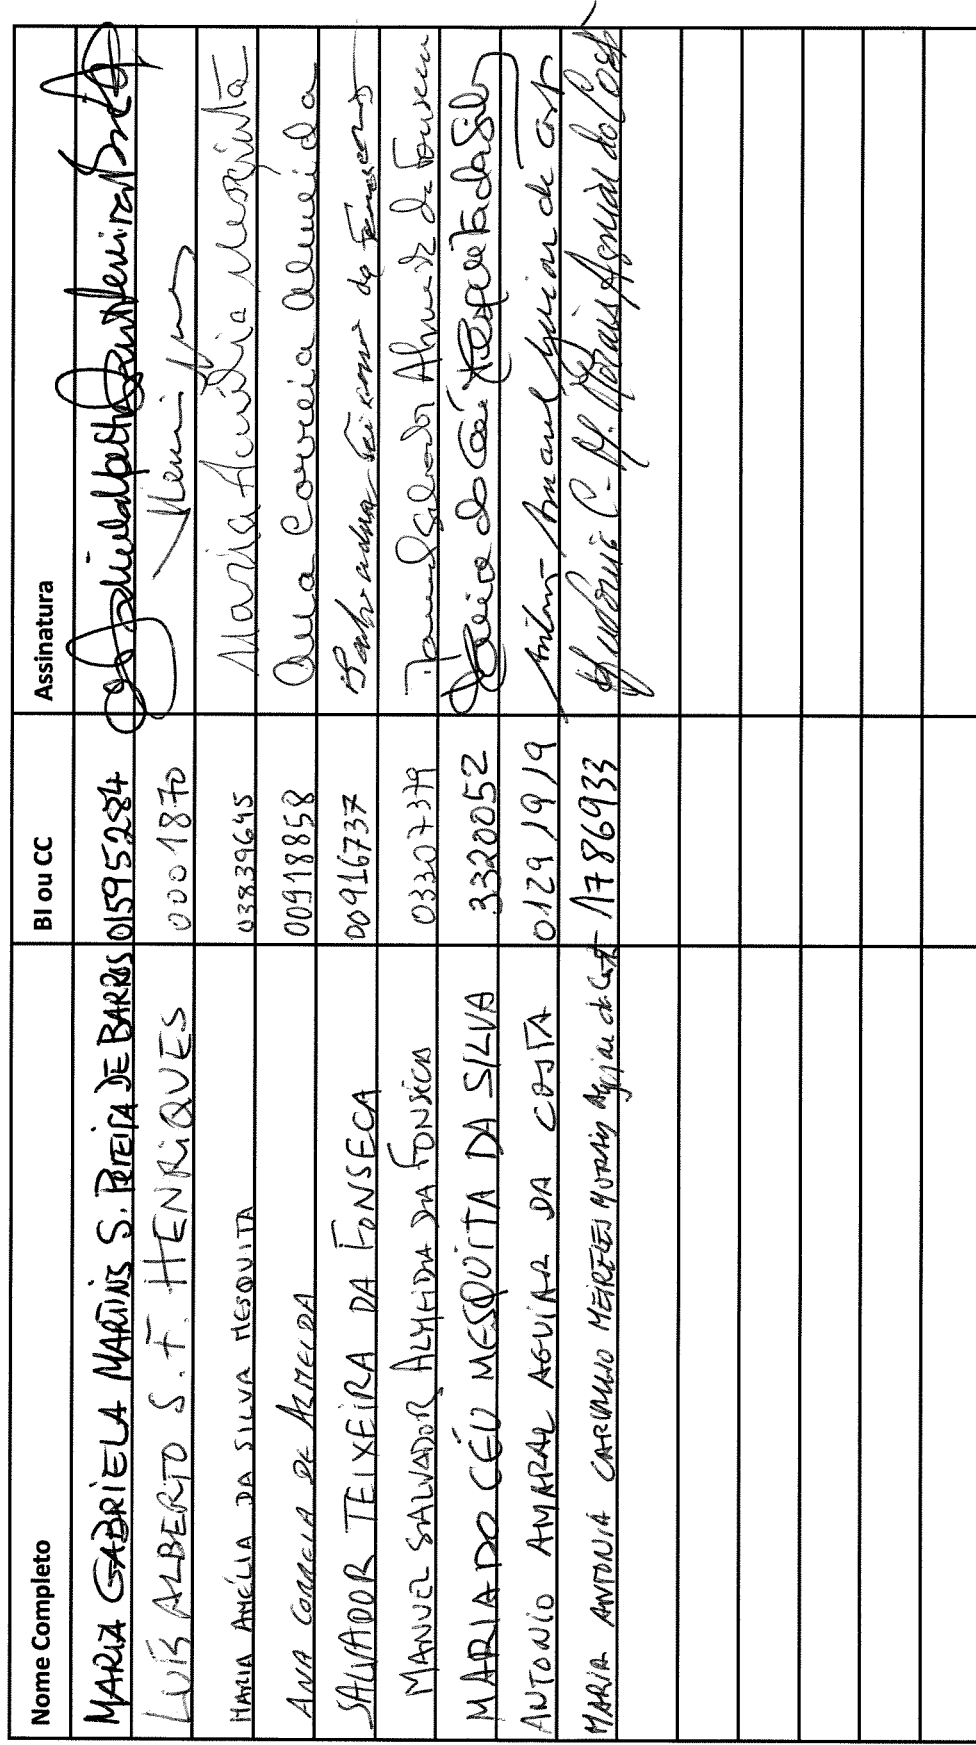 Nome Completo BI ou CC Assinatura
MARIA GABRIELA MARTINS S. PEREIRA DE BARROS 01595284
LUÍS ALBERTO S. F. HENRIQUES 00001870
MARIA AMÉLIA DA SILVA MESQUITA 03839645 Maria Amélia Mesquita
ANA CORREIA DE ALMEIDA 00918858 Ana Correia Almeida
SALVADOR TEIXEIRA DA FONSECA 00916737 Salvador Teixeira da Fonseca
MANUEL SALVADOR ALMEIDA DA FONSECA 03307379 Manuel Salvador Almeida da Fonseca
MARIA DO CÉU MESQUITA DA SILVA 3320052 Maria do Céu Mesquita da Silva
ANTONIO AMARAL AGUIAR DA COSTA 01291919 António Amaral Aguiar da Costa
MARIA ANTONIA CARVALHO MEIRELES MORAIS Aguiar da Costa 1786933 Morais Aguiar da Costa